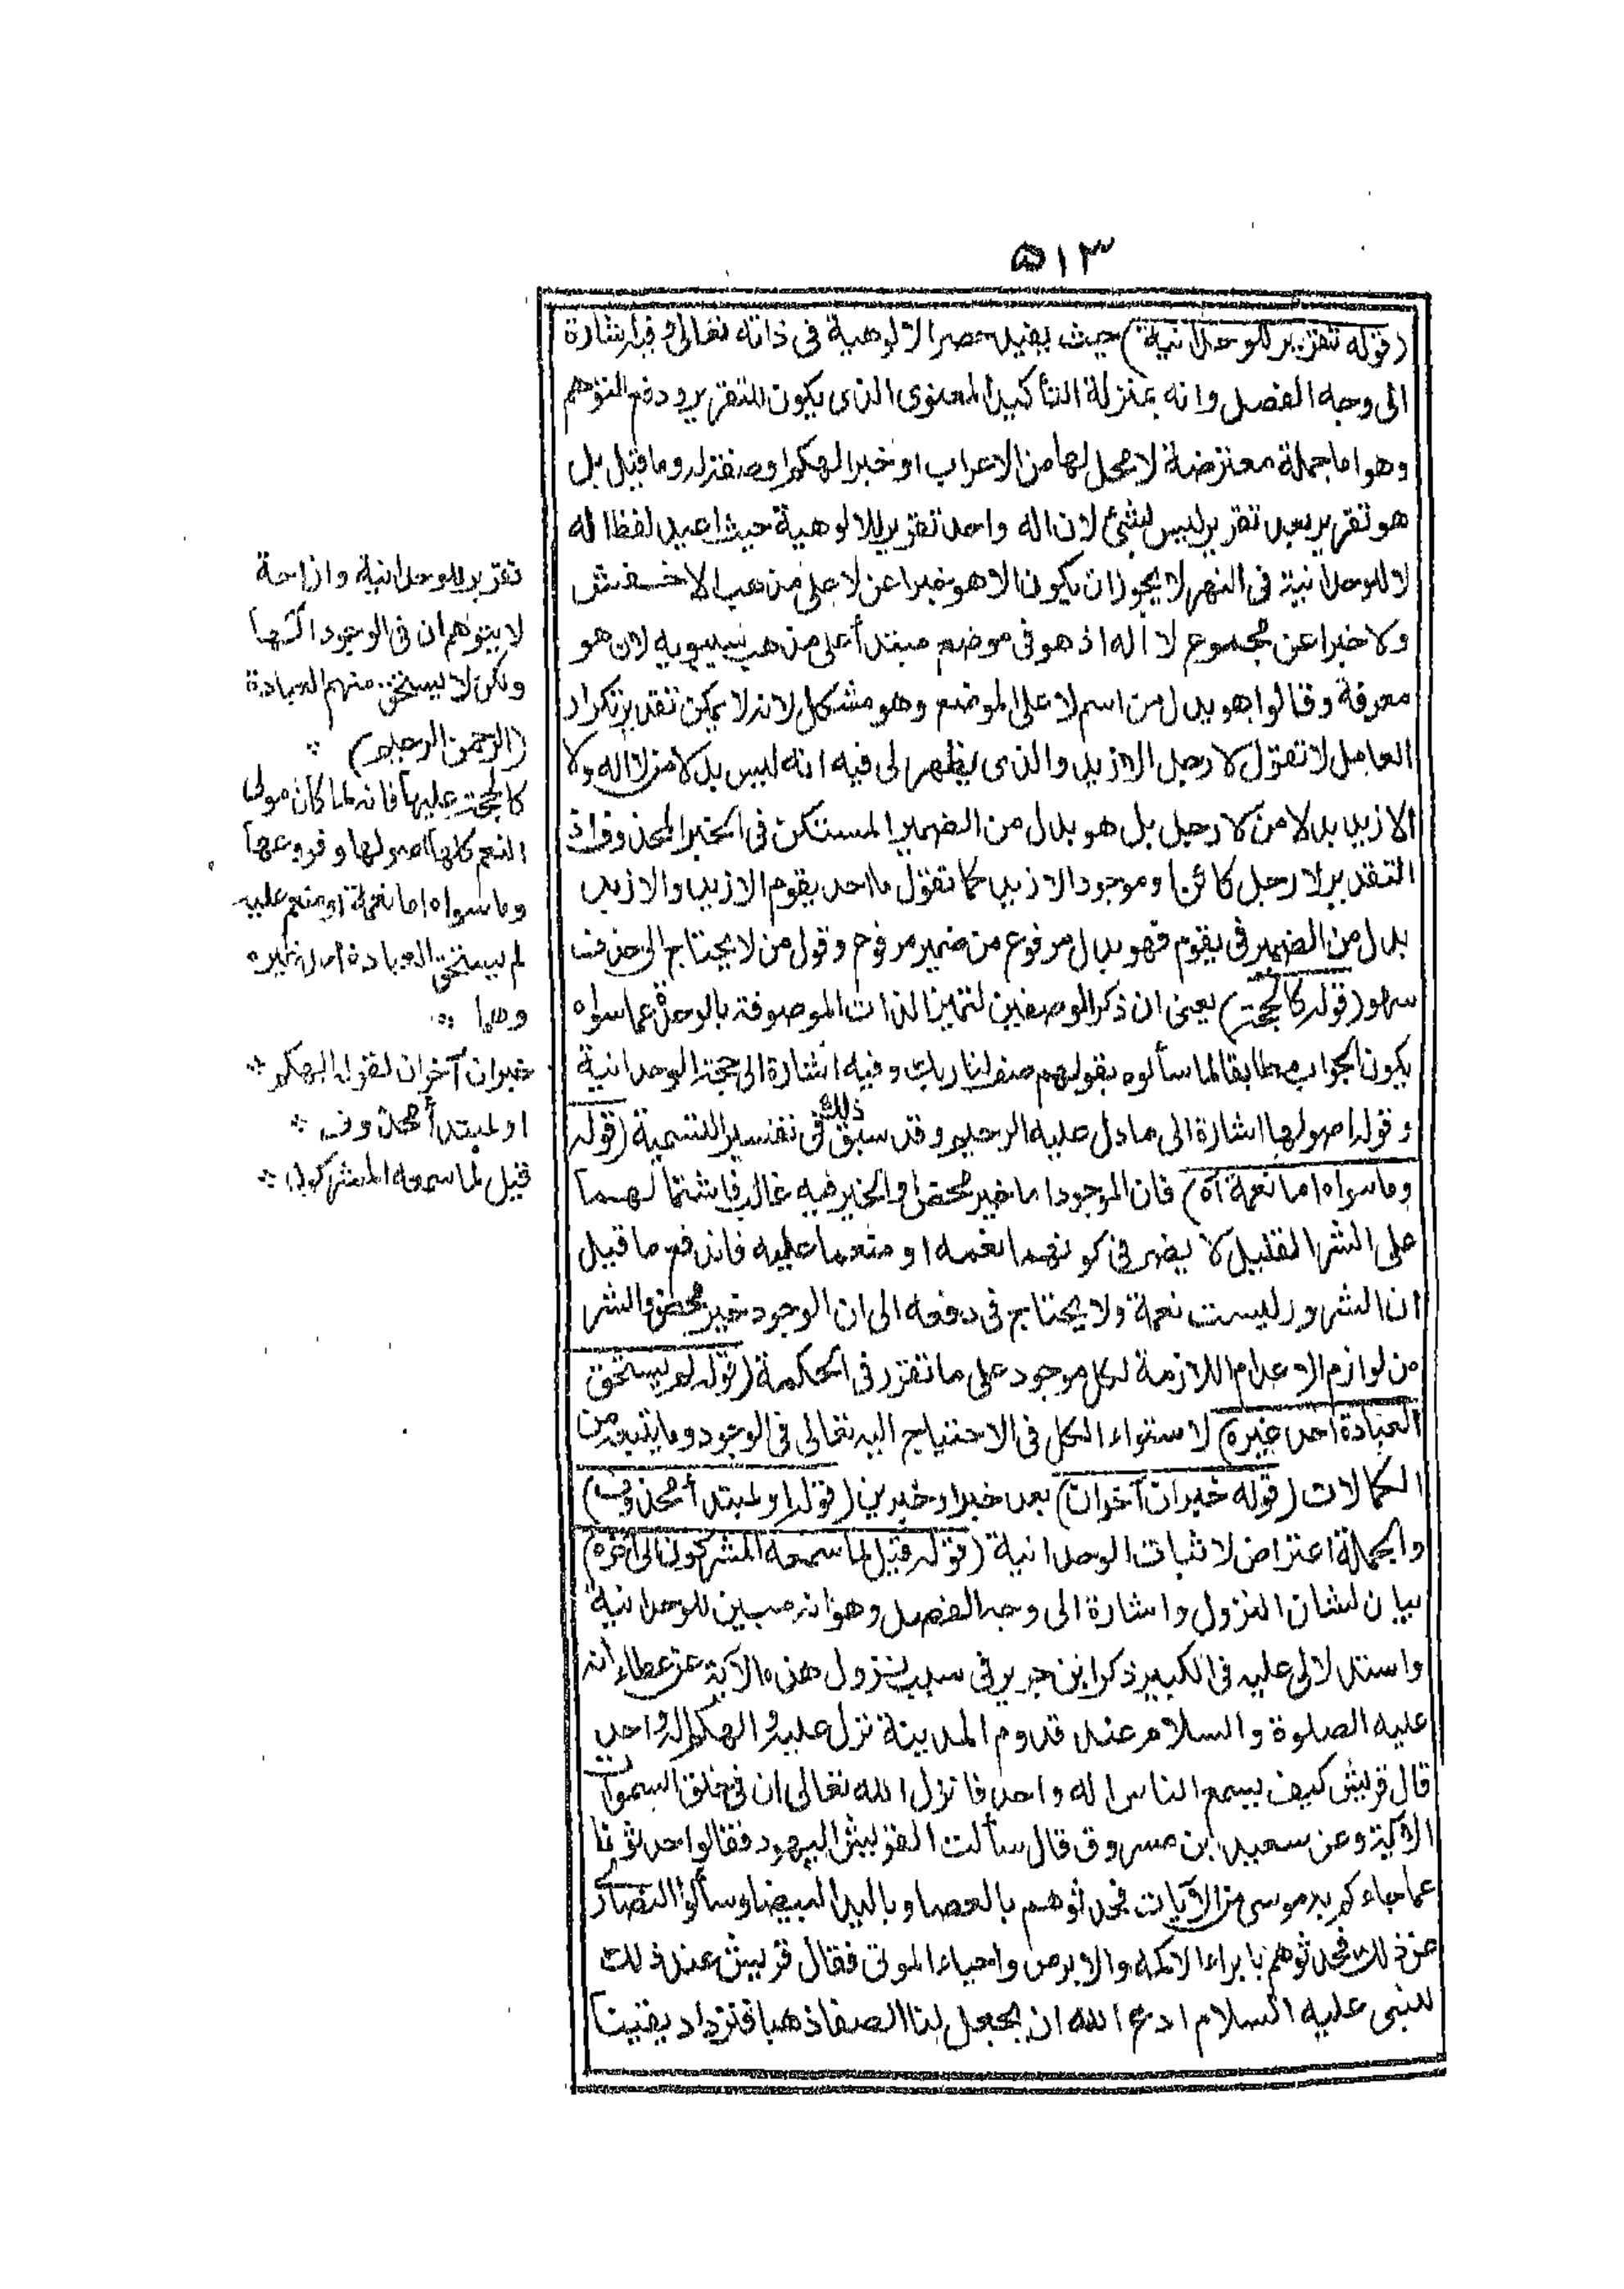 ۵۱۳
(قوله تقرير للوحدانية) حيث يفيد حصر الالوهية فى ذاته تعالى وفيه اشارة
الى وجه الفصل وانه بمنزلة التأكيد المعنوى الذى يكون للتقرير ودفع التوهم
وهو اما جملة معترضة لا محل لها من الاعراب او خبر الهكم او صفة له وما قيل بل
هو تقرير بعد تقرير ليس بشئ لان اله واحد تقرير للالوهية حيث اعيد لفظ اله
لا للوحدانية فى النهر لا يجوز ان يكون الا هو خبرا عن لا على مذهب الاخفش
ولا خبرا عن مجموع لا اله اذ هو فى موضع مبتدأ على مذهب سيبويه لان هو
معرفة وقالوا هو بدل من اسم لا على الموضع وهو مشكل لانه لا يمكن تقدير تكرار
العامل لا تقول لا رجل الا زيد والذى يظهر لى فيه انه ليس بدلا من لا اله ولا
الا زيد بدلا من لا رجل بل هو بدل من الضمير المستكن فى الخبر المحذوف اذ
التقدير لا رجل كائن او موجود الا زيد كما تقول ما احد يقوم الا زيد والا زيد
بدل من الضمير فى يقوم فهو بدل مرفوع من ضمير مرفوع وقول من لا يحتاج الى حذف
سهو (قوله كالحجة) يعنى ان ذكر الوصفين لتميز الذات الموصوفة بالوحدة عما سواه
يكون الجواب مطابقا لما سألوه بقولهم صف لنا ربك وفيه اشارة الى حجة الوحدانية
وقوله اصولها اشارة الى ما دل عليه الرحيم وقد سبق ذلك فى تفسير التسمية (قوله
وما سواه اما نعمة آه) فان الموجود اما خير محض او الخير فيه غالب فاشتمالهما
على الشر القليل لا يضر فى كونهما نعمه او منعما عليه فاندفع ما قيل
ان الشرور ليست نعمة ولا يحتاج فى دفعه الى ان الوجود خير محض والشر
من لوازم الاعدام اللازمة لكل موجود على ما تقرر فى الحكمة (قوله لم يستحق
العبادة احد غيره) لاستواء الكل فى الاحتياج اليه تعالى فى الوجود وما يتبعه من
الكمالات (قوله خبران آخران) بعد خبر او خبرين (قوله او لمبتدأ محذوف)
والجملة اعتراض لاثبات الوحدانية (قوله قيل لما سمعه المشركون الى آخره)
بيان لشان النزول واشارة الى وجه الفصل وهو انه مبين للوحدانية
واستدلالى عليه فى الكبير ذكر ابن جرير فى سبب نزول هذه الآية عن عطاء انه
عليه الصلوة والسلام عند قدوم المدينة نزل عليه والهكم اله واحد
قال قريش كيف يسمع الناس اله واحد فانزل الله تعالى ان فى خلق السموات
الآية وعن سعيد ابن مسروق قال سألت القريش اليهود فقالوا حدثونا
عما جاءكم به موسى من الآيات فحدثوهم بالعصا وباليد البيضا وسألوا النصارى
عن ذلك فحدثوهم بابراء الاكمه والابرص واحياء الموتى فقال قريش عند ذلك
للنبى عليه السلام ادع الله ان يجعل لنا الصفا ذهبا فنزداد يقينا
تقرير للوحدانية وازاحة
لا يتوهم ان فى الوجود آلها
ولكن لا يستحق منهم العبادة
(الرحمن الرحيم)
كالحجة عليها فانه لما كان مولى
النعم كلها اصولها وفروعها
وما سواه اما نعمة او منعم عليه
لم يستحق العبادة احد غيره
وهما
خبران آخران لقوله الهكم
او لمبتدأ محذوف
قيل لما سمعه المشركون